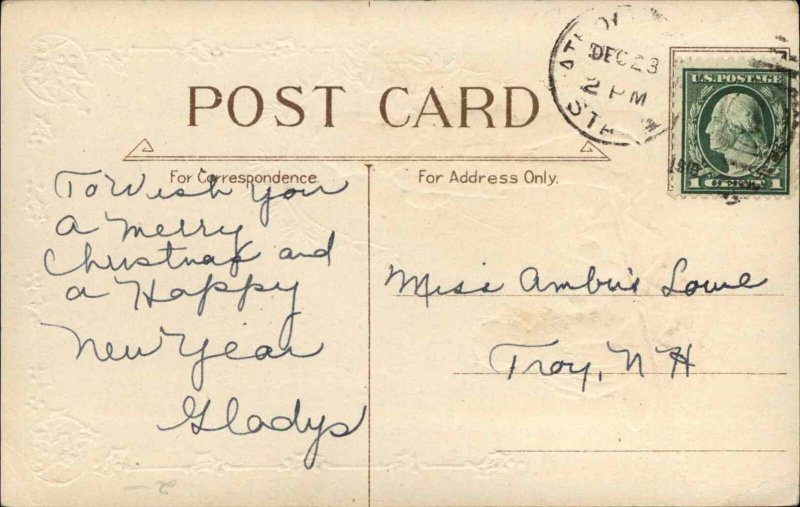 POST CARD
DEC 23
2 PM
U.S. POSTAGE
1 CENT 1
For Correspondence.
For Address Only.
To Wish You
a Merry
Christmas and
a Happy
New Year
Gladys
Miss Lowe
Troy, N H